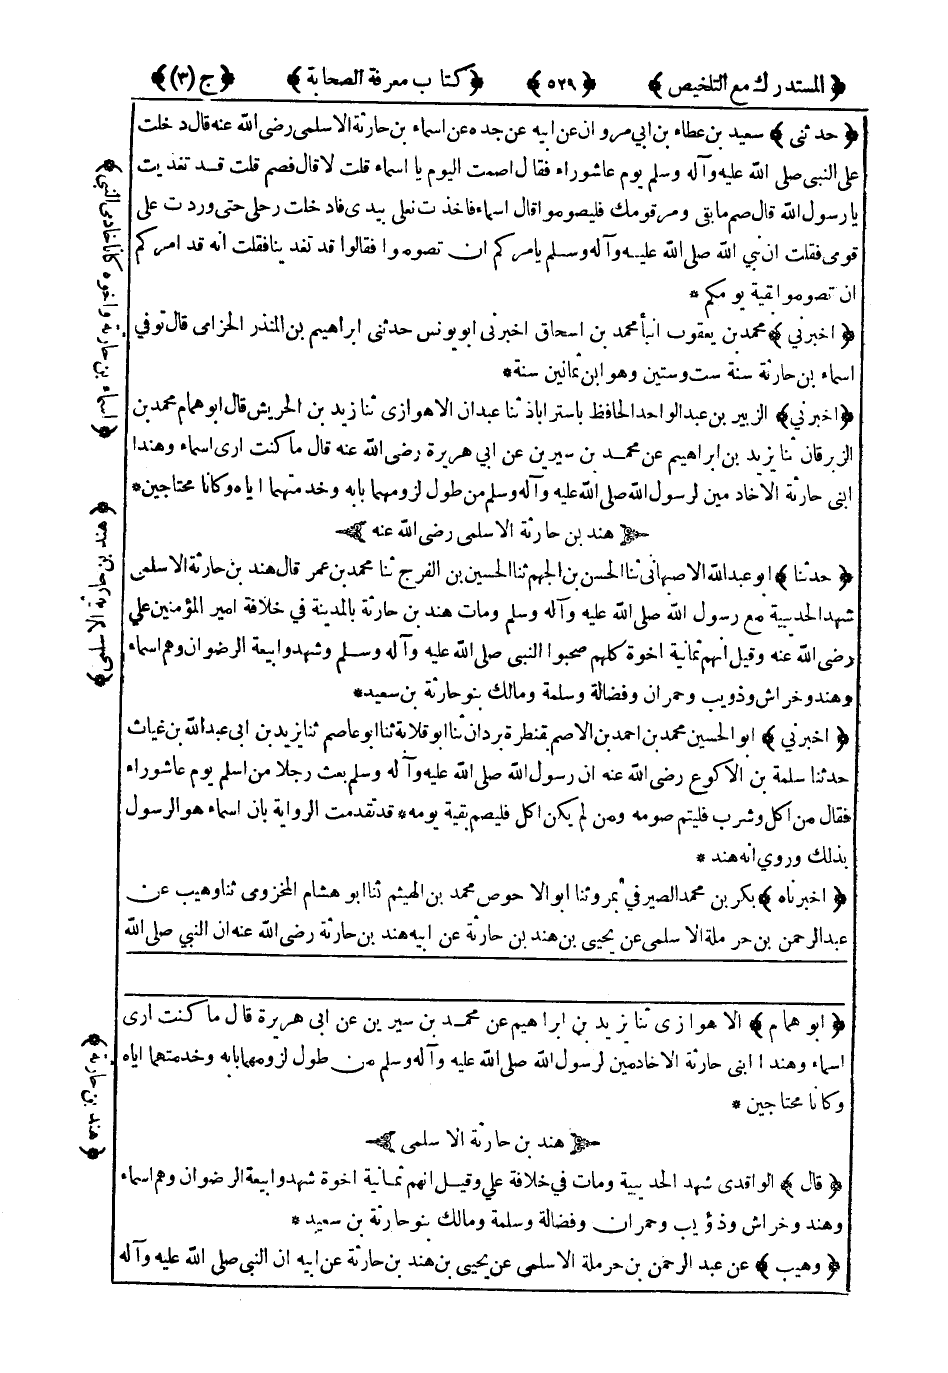 ﴿ المستدرك مع التلخيص ﴾ ﴿ ٥٢٩ ﴾ ﴿ كتاب معرفة الصحابة ﴾ ﴿ ج (٣) ﴾
﴿ حدثنى ﴾ سعيد بن عطاء بن ابي مروان عن ابيه عن جده عن اسماء بن حارثة الاسلمى رضى الله عنه قال دخلت
على النبى صلى الله عليه وآله وسلم يوم عاشوراء فقال اصمت اليوم يا اسماء قلت لا قال فصم قلت قد تغديت
يا رسول الله قال صم ما بقى ومر قومك فليصوموا قال اسماء فاخذت نعلى بيدى فادخلت رحلى حتى وردت على
قومى فقلت ان نبي الله صلى الله عليه وآله وسلم يامركم ان تصوموا فقالوا قد تغدينا فقلت انه قد امركم
ان تصوموا بقية يومكم *
﴿ اخبرني ﴾ محمد بن يعقوب انبأ محمد بن اسحاق اخبرنى ابويونس حدثنى ابراهيم بن المنذر الحزامى قال توفي
اسماء بن حارثة سنة ست وستين وهو ابن ثمانين سنة *
﴿ اخبرني ﴾ الزبير بن عبدالواحد الحافظ باستراباذ ثنا عبدان الاهوازى ثنا زيد بن الحريش قال ابوهمام محمد بن
الزبرقان ثنا يزيد بن ابراهيم عن محمد بن سيرين عن ابي هريرة رضى الله عنه قال ما كنت ارى اسماء وهندا
ابنى حارثة الاخادمين لرسول الله صلى الله عليه وآله وسلم من طول لزومهما بابه وخدمتهما اياه وكانا محتاجين *
هند بن حارثة الاسلمى رضى الله عنه
﴿ حدثنا ﴾ ابو عبدالله الاصبهانى ثنا الحسن بن الجهم ثنا الحسين بن الفرج ثنا محمد بن عمر قال هند بن حارثة الاسلمى
شهد الحديبية مع رسول الله صلى الله عليه وآله وسلم ومات هند بن حارثة بالمدينة في خلافة امير المؤمنين علي
رضى الله عنه وقيل أنهم ثمانية اخوة كلهم صحبوا النبى صلى الله عليه وآله وسلم وشهدوا بيعة الرضوان وهم اسماء
وهند وخراش وذويب وحمران وفضالة وسلمة ومالك بنو حارثة بن سعيد *
﴿ اخبرني ﴾ ابو الحسين محمد بن احمد بن الاصم بقنطرة بردان ثنا ابو قلابة ثنا ابو عاصم ثنا يزيد بن ابى عبدالله بن غياث
حدثنا سلمة بن الاكوع رضى الله عنه ان رسول الله صلى الله عليه وآله وسلم بعث رجلا من اسلم يوم عاشوراء
فقال من اكل وشرب فليتم صومه ومن لم يكن اكل فليصم بقية يومه * قد تقدمت الرواية بان اسماء هو الرسول
بذلك وروي انه هند *
﴿ اخبرناه ﴾ بكر بن محمد الصيرفي بمرو ثنا ابو الاحوص محمد بن الهيثم ثنا ابو هشام المخزومى ثنا وهيب عن
عبدالرحمن بن حرملة الاسلمى عن يحيى بن هند بن حارثة عن ابيه هند بن حارثة رضى الله عنه ان النبي صلى الله
﴿ ابو همام ﴾ الاهوازى ثنا يزيد بن ابراهيم عن محمد بن سيرين عن ابى هريرة قال ما كنت ارى
اسماء وهندا ابنى حارثة الاخادمين لرسول الله صلى الله عليه وآله وسلم من طول لزومهما بابه وخدمتهما اياه
وكانا محتاجين *
هند بن حارثة الاسلمى
﴿ قال ﴾ الواقدى شهد الحديبية ومات في خلافة علي وقيل انهم ثمانية اخوة شهدوا بيعة الرضوان وهم اسماء
وهند وخراش وذؤيب وحمران وفضالة وسلمة ومالك بنو حارثة بن سعيد *
﴿ وهيب ﴾ عن عبد الرحمن بن حرملة الاسلمى عن يحيى بن هند بن حارثة عن ابيه ان النبى صلى الله عليه وآله
﴿ اسماء بن حارثة واخوه كانا خادمى النبي ﴾
﴿ هند بن حارثة الاسلمى ﴾
﴿ هند بن حارثة ﴾